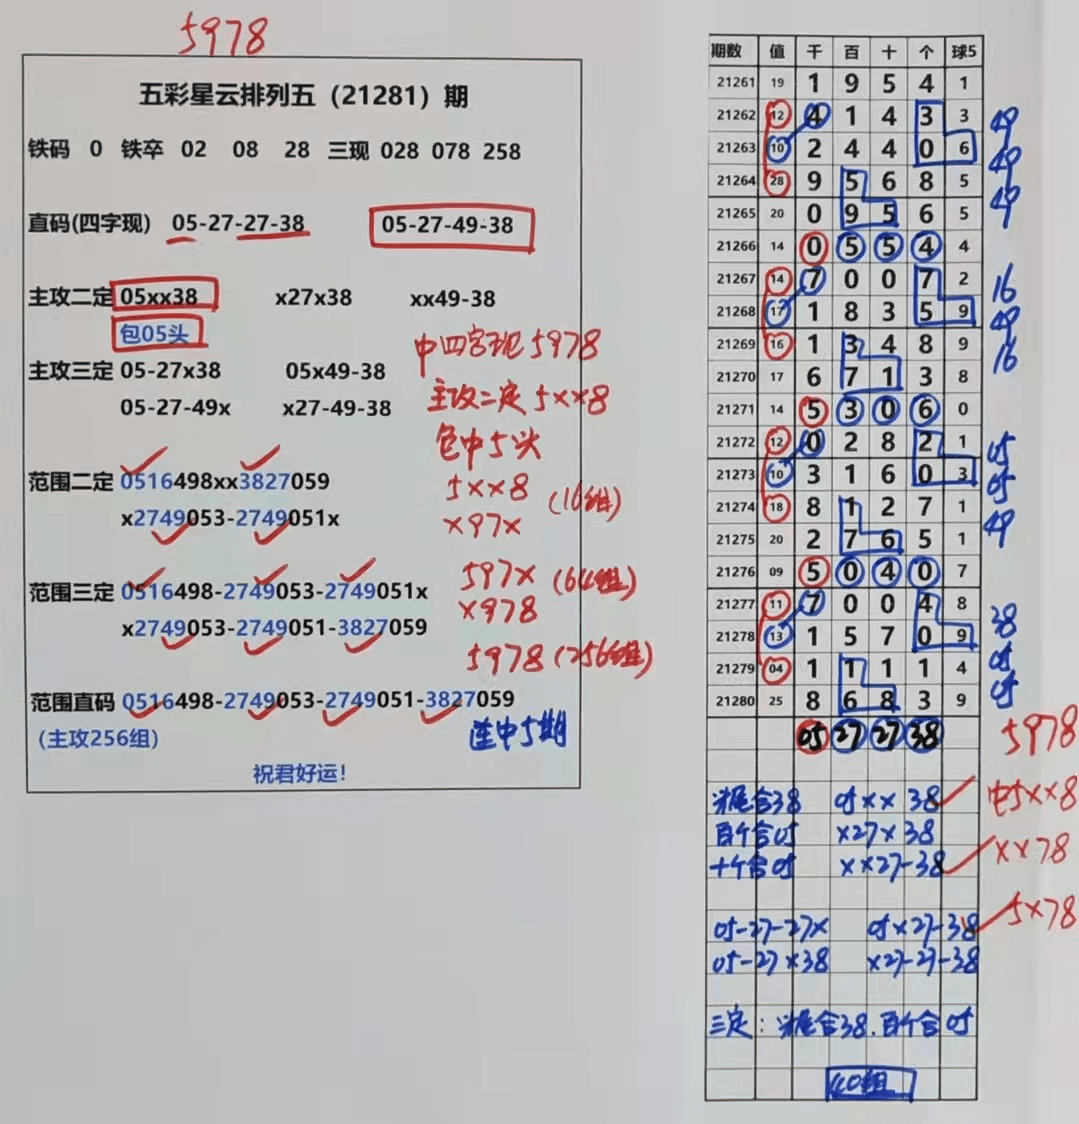 5978
五彩星云排列五（21281）期
铁码 0 铁卒 02 08 28 三现 028 078 258
直码(四字现) 05-27-27-38 05-27-49-38
主攻二定 05xx38 x27x38 xx49-38
包05头
主攻三定 05-27x38 05x49-38
05-27-49x x27-49-38
中四字现5978
主攻二定5xx8
包中5头
范围二定 0516498xx3827059
x2749053-2749051x
5xx8 (16组)
x97x
范围三定 0516498-2749053-2749051x
x2749053-2749051-3827059
597x (64组)
x978
5978 (256组)
范围直码 0516498-2749053-2749051-3827059
(主攻256组)
连中5期
祝君好运！
期数 值 千 百 十 个 球5
21261 19 1 9 5 4 1
21262 12 4 1 4 3 3 49
21263 10 2 4 4 0 6 49
21264 28 9 5 6 8 5 49
21265 20 0 9 5 6 5
21266 14 0 5 5 4 4
21267 14 7 0 0 7 2 16
21268 17 1 8 3 5 9 49
21269 16 1 3 4 8 9 16
21270 17 6 7 1 3 8
21271 14 5 3 0 6 0
21272 12 0 2 8 2 1 05
21273 10 3 1 6 0 3 05
21274 18 8 1 2 7 1 49
21275 20 2 7 6 5 1
21276 09 5 0 4 0 7
21277 11 7 0 0 4 8 38
21278 13 1 5 7 0 9 05
21279 04 1 1 1 1 4 05
21280 25 8 6 8 3 9
05 27 27 38 5978
头尾合38 05xx38 中5xx8
百个合05 x27x38
十个合05 xx27-38 xx78
05-27-27x 05x27-38 5x78
05-27x38 x27-27-38
三定：头尾合38.百个合05
40组